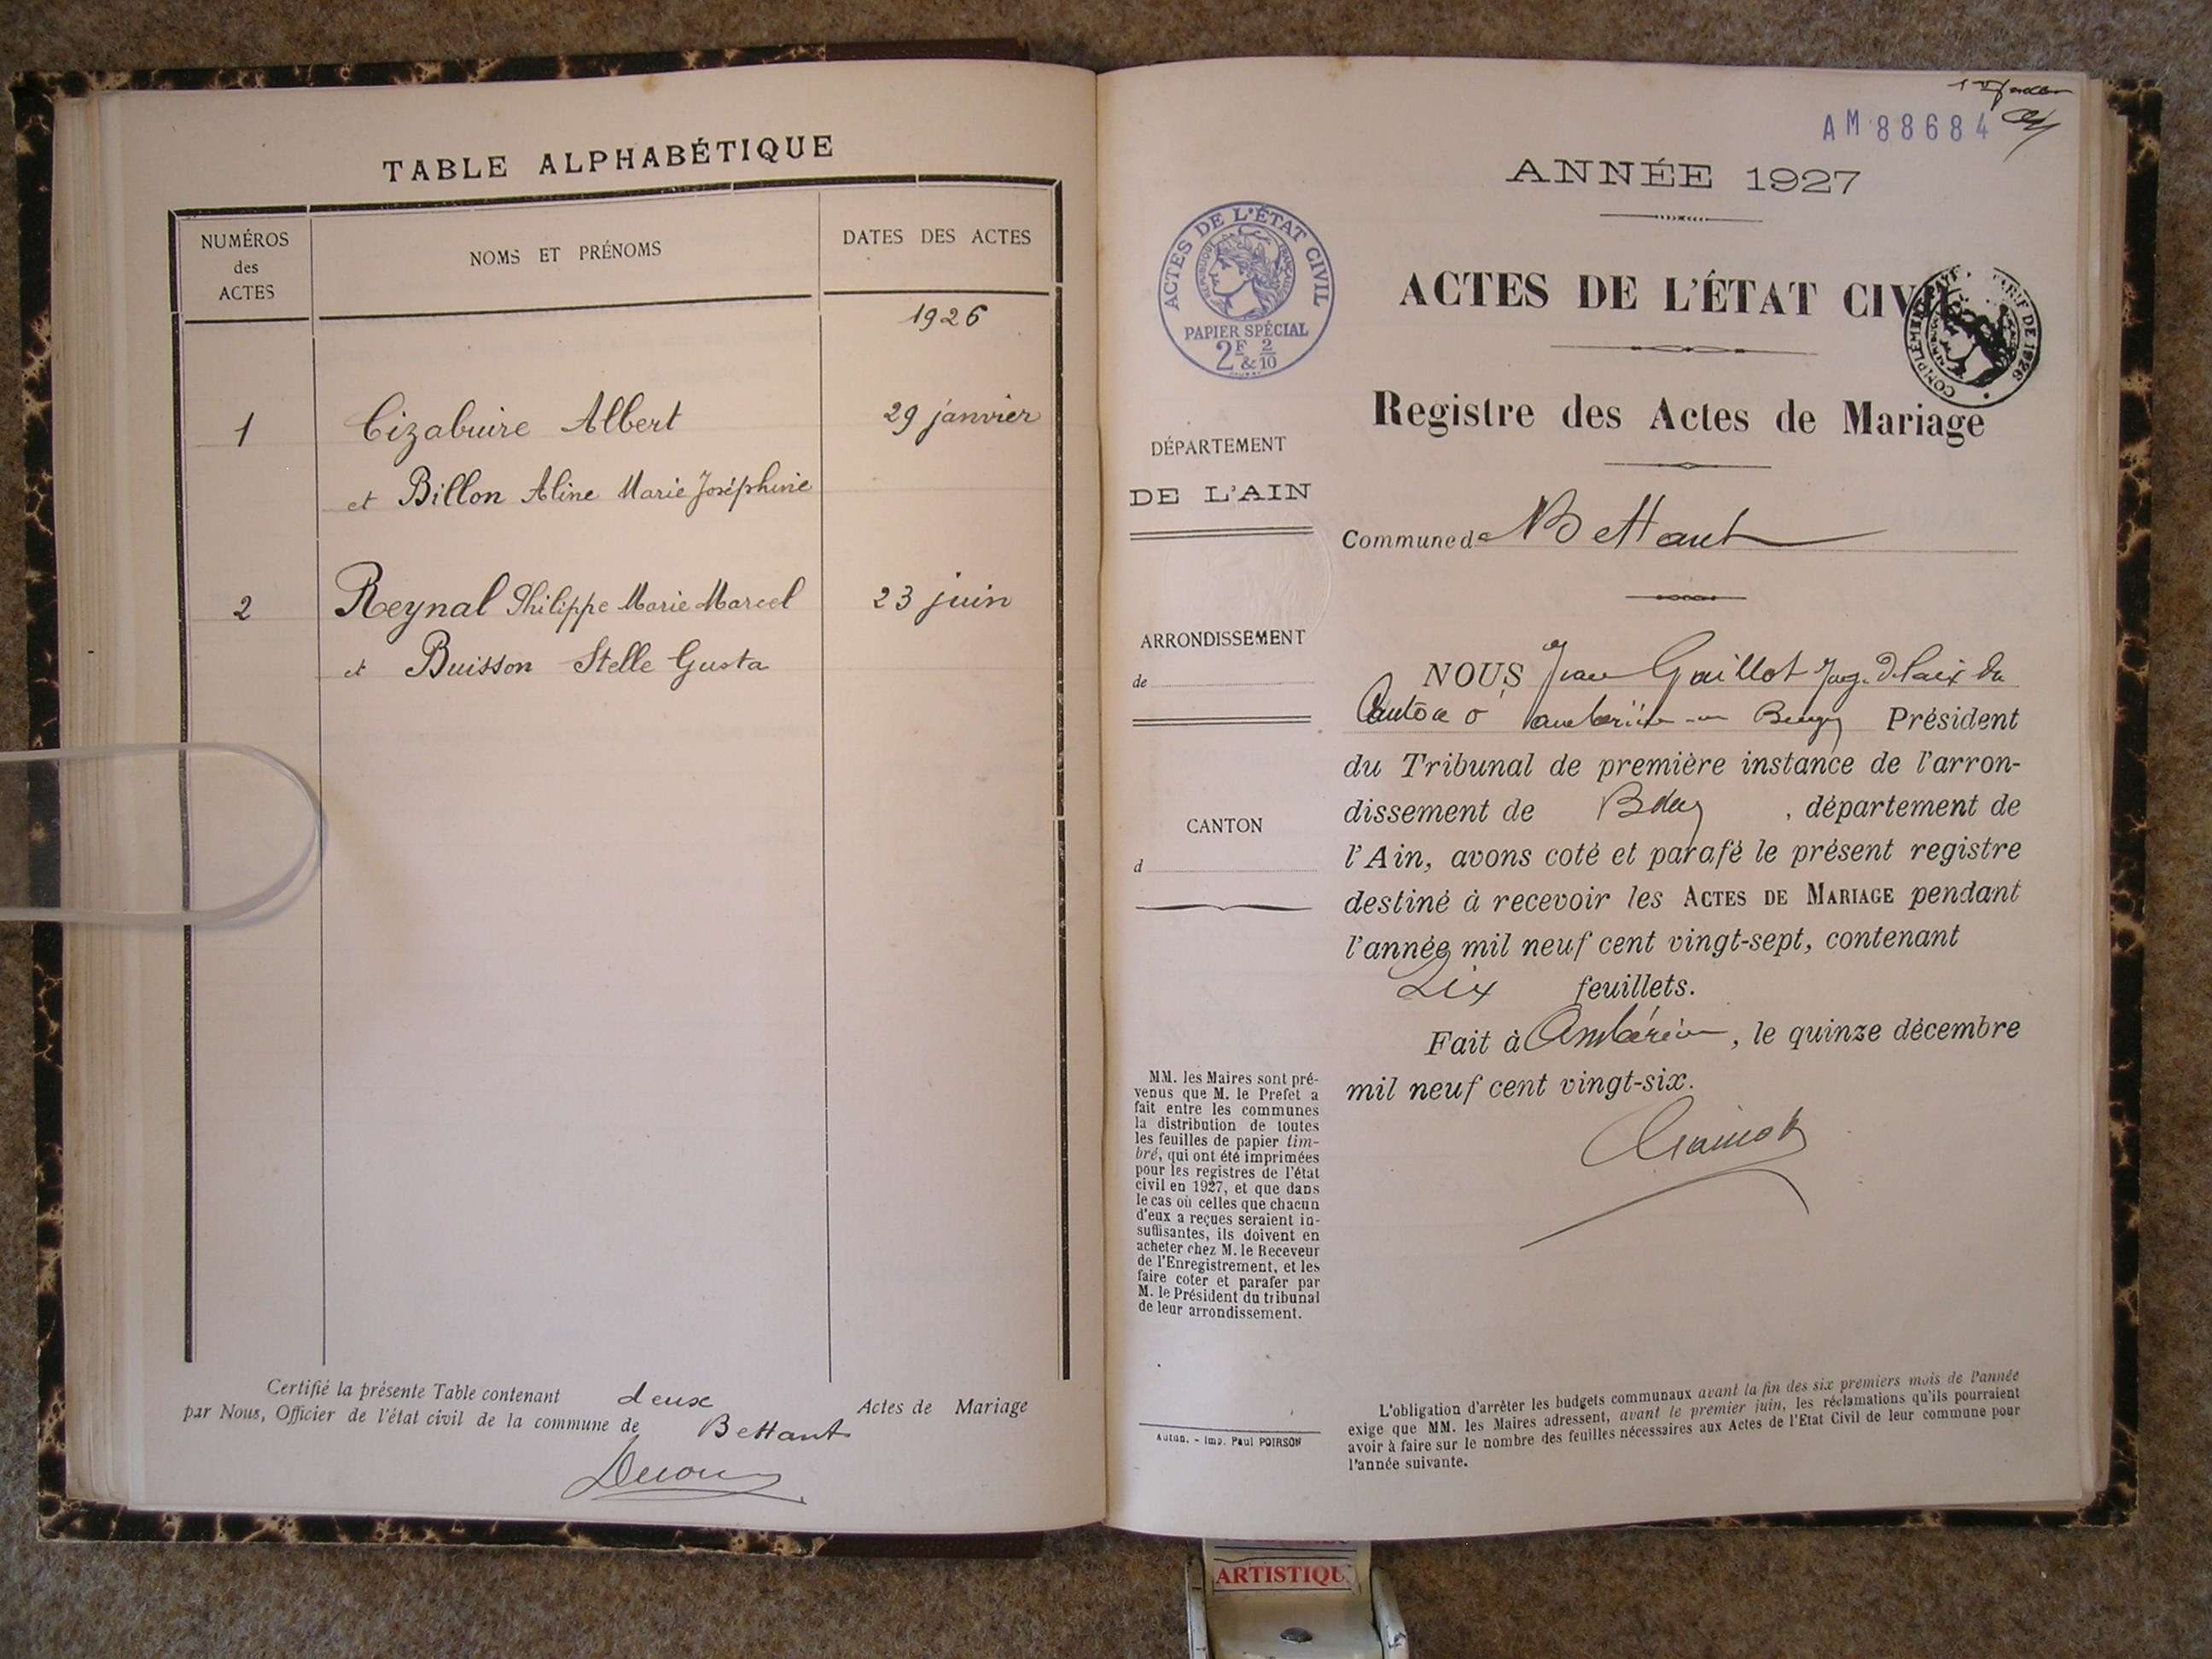 TABLE ALPHABÉTIQUE
NUMÉROS
des
ACTES
NOMS ET PRÉNOMS
DATES DES ACTES
1926
1
Cizabuire Albert
29 janvier
et Billon Aline Marie Joséphine
2
Reynal Philippe Marie Marcel
23 juin
et Buisson Stelle Gusta
Certifié la présente Table contenant deux Actes de Mariage
par Nous, Officier de l'état civil de la commune de Bettant
AM 88684
ANNÉE 1927
ACTES DE L'ÉTAT CIVIL
PAPIER SPÉCIAL
2F & 2/10
ACTES DE L'ÉTAT CIVIL
Registre des Actes de Mariage
DÉPARTEMENT
DE L'AIN
Commune de Bettant
ARRONDISSEMENT
de
CANTON
d
NOUS Jean Guillot Juge de Paix du
Canton d'Ambérieu-en-Bugey Président
du Tribunal de première instance de l'arron-
dissement de , département de
l'Ain, avons coté et parafé le présent registre
destiné à recevoir les ACTES DE MARIAGE pendant
l'année mil neuf cent vingt-sept, contenant
feuillets.
Fait à Ambérieu, le quinze décembre
mil neuf cent vingt-six.
MM. les Maires sont pré-
venus que M. le Prefet a
fait entre les communes
la distribution de toutes
les feuilles de papier tim-
bré, qui ont été imprimées
pour les registres de l'état
civil en 1927, et que dans
le cas où celles que chacun
d'eux a reçues seraient in-
suffisantes, ils doivent en
acheter chez M. le Receveur
de l'Enregistrement, et les
faire coter et parafer par
M. le Président du tribunal
de leur arrondissement.
Autun. - Imp. Paul POIRSON
L'obligation d'arrêter les budgets communaux avant la fin des six premiers mois de l'année
exige que MM. les Maires adressent, avant le premier juin, les réclamations qu'ils pourraient
avoir à faire sur le nombre des feuilles nécessaires aux Actes de l'Etat Civil de leur commune pour
l'année suivante.
ARTISTIQU